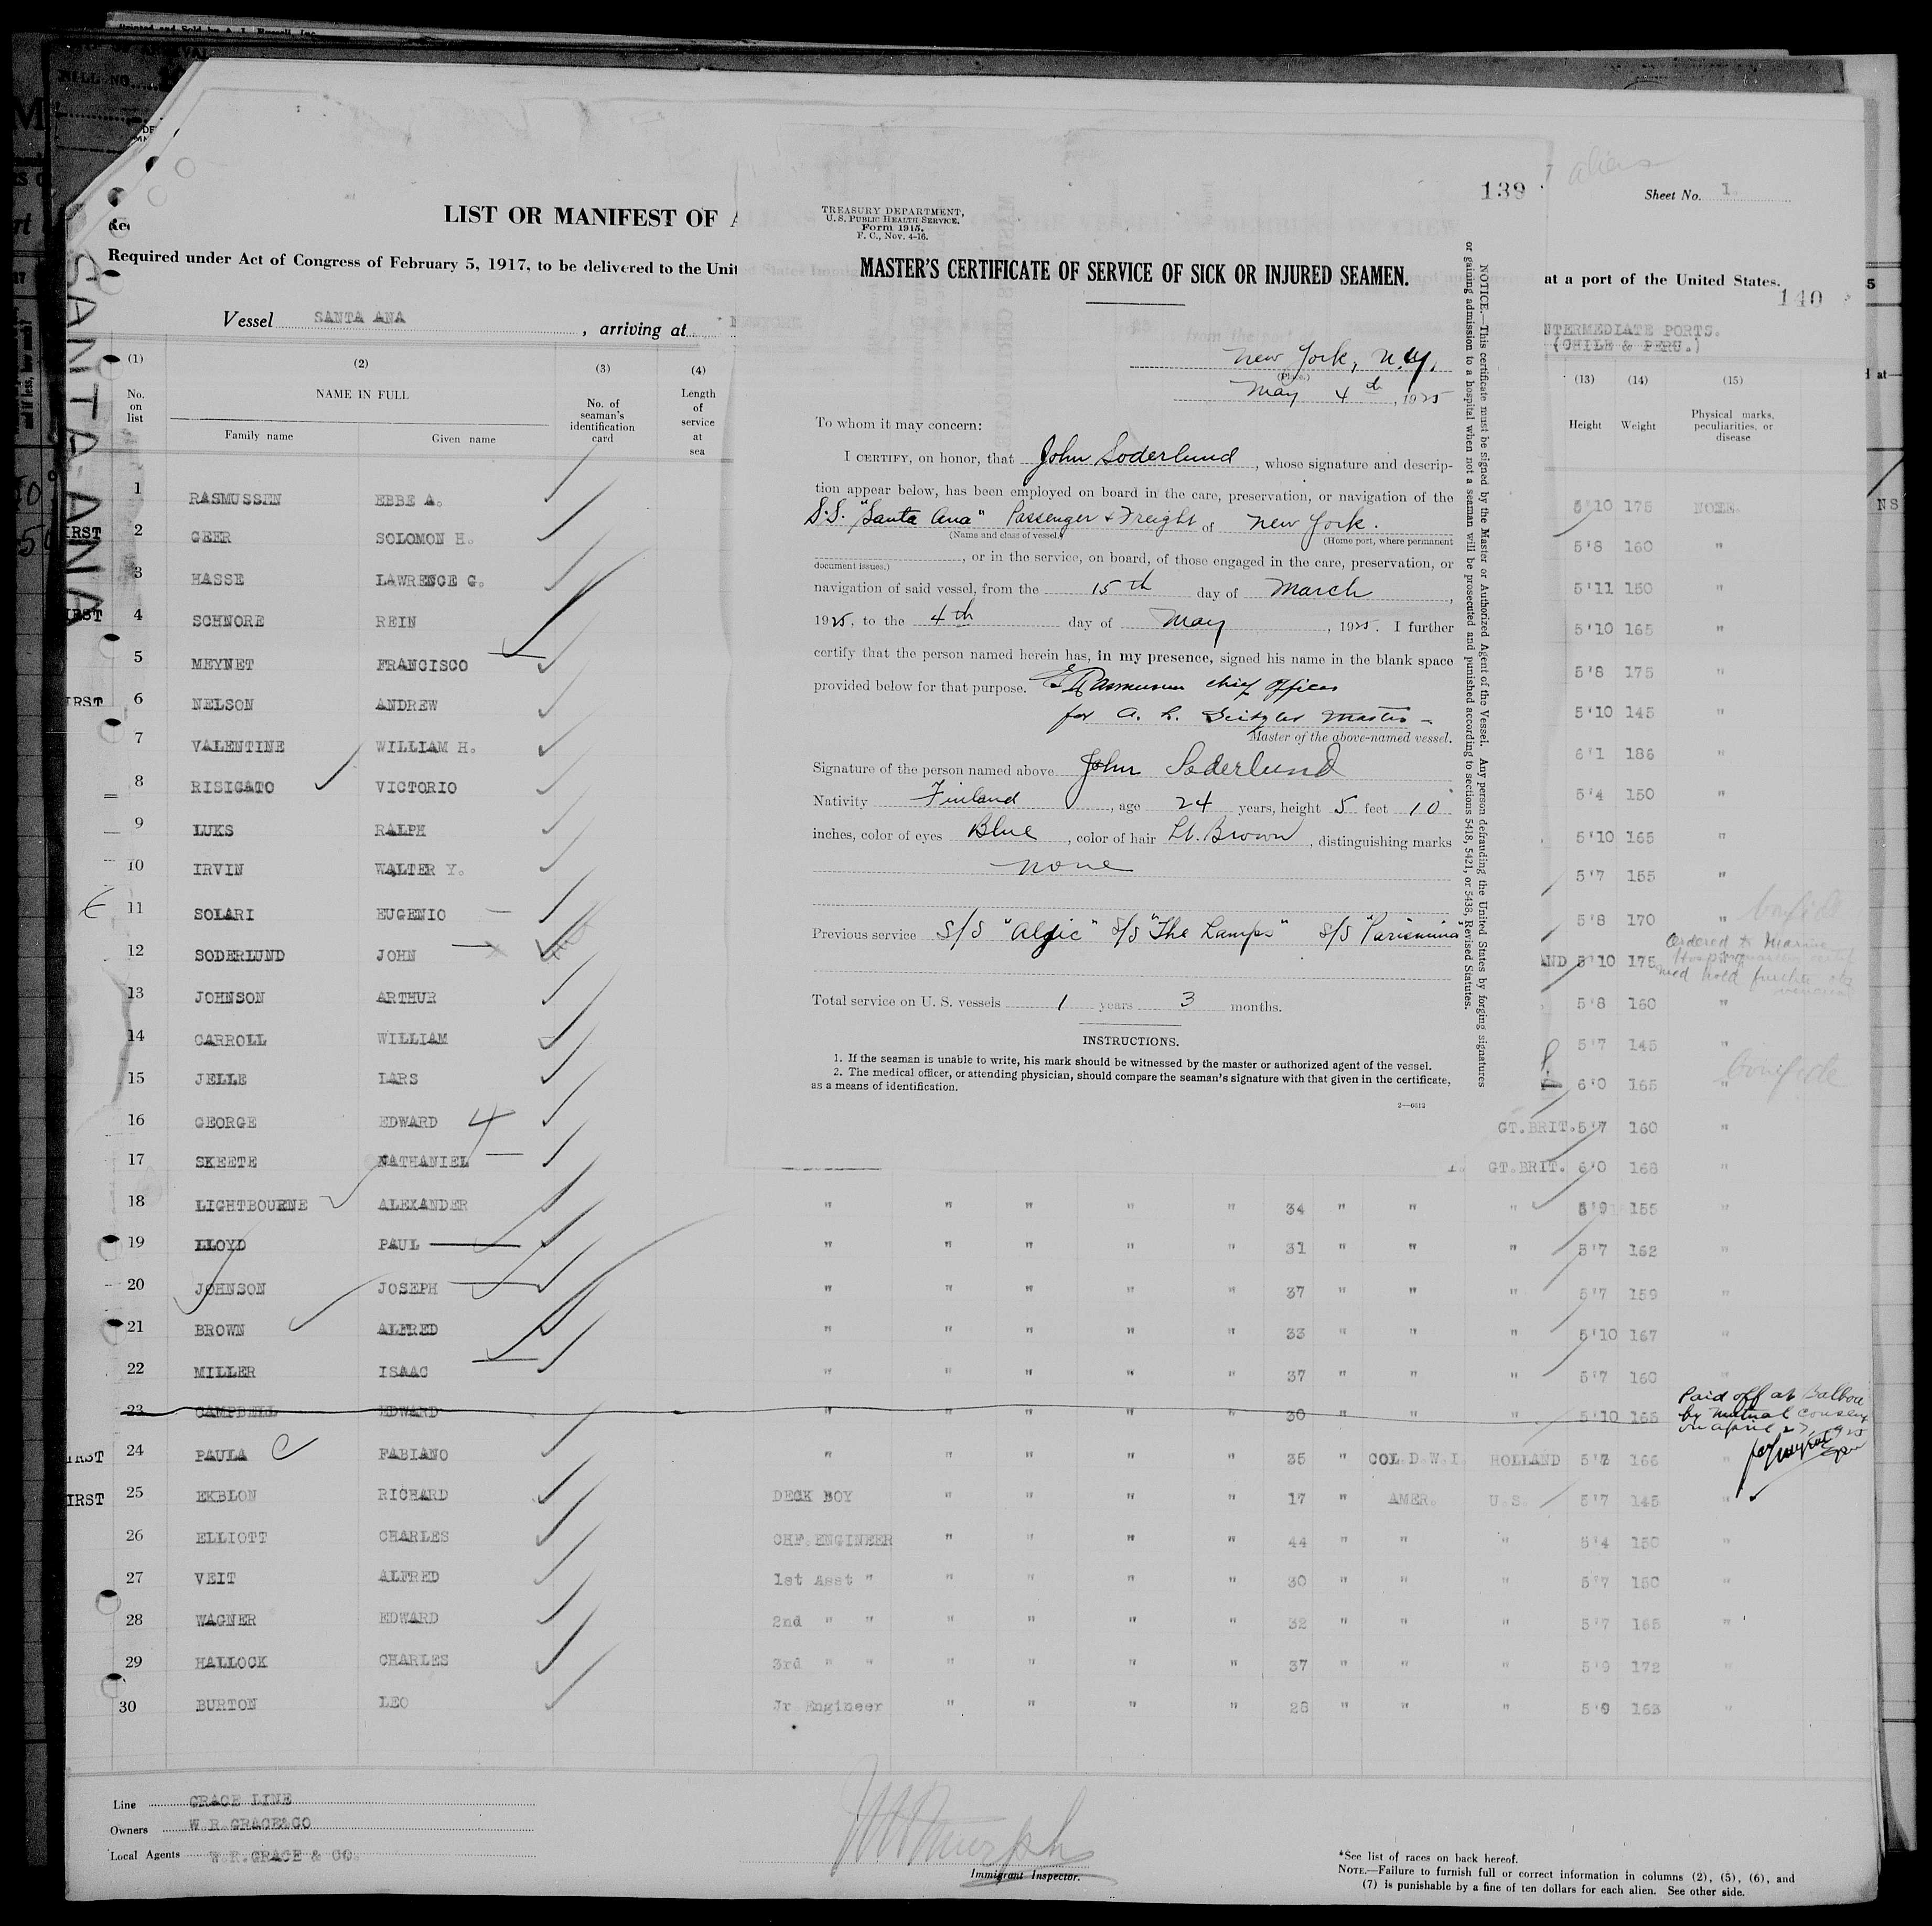 139
Sheet No. 1.
LIST OR MANIFEST OF A
Required under Act of Congress of February 5, 1917, to be delivered to the Unit
at a port of the United States.
140
Vessel SANTA ANA , arriving at
INTERMEDIATE PORTS.
(CHILE & PERU.)
SANTA-ANA
(1) (2) (3) (4) (13) (14) (15)
No. on list NAME IN FULL No. of seaman's identification card Length of service at sea Height Weight Physical marks, peculiarities, or disease
Family name Given name
TREASURY DEPARTMENT,
U. S. PUBLIC HEALTH SERVICE.
Form 1915.
F. C., Nov. 4-16.
MASTER'S CERTIFICATE OF SERVICE OF SICK OR INJURED SEAMEN.
New York, N.Y.
(Place.)
May 4th, 1925
To whom it may concern:
I CERTIFY, on honor, that John Soderlund, whose signature and descrip-
tion appear below, has been employed on board in the care, preservation, or navigation of the
S.S. "Santa Ana" Passenger & Freight of New York.
(Name and class of vessel.) (Home port, where permanent
document issues.) , or in the service, on board, of those engaged in the care, preservation, or
navigation of said vessel, from the 15th day of March,
1925, to the 4th day of May, 1925. I further
certify that the person named herein has, in my presence, signed his name in the blank space
provided below for that purpose. E Rasmussen chief officer
for A. R. Master
Master of the above-named vessel.
Signature of the person named above John Soderlund
Nativity Finland, age 24 years, height 5 feet 10
inches, color of eyes Blue, color of hair Lt. Brown, distinguishing marks
none
Previous service S/S "Algic" S/S "The Lamps" S/S "Parismina"
Total service on U. S. vessels 1 years 3 months.
INSTRUCTIONS.
1. If the seaman is unable to write, his mark should be witnessed by the master or authorized agent of the vessel.
2. The medical officer, or attending physician, should compare the seaman's signature with that given in the certificate,
as a means of identification.
2—6612
NOTICE.—This certificate must be signed by the Master or Authorized Agent of the Vessel. Any person defrauding the United States by forging signatures
or gaining admission to a hospital when not a seaman will be prosecuted and punished according to sections 5418, 5421, or 5438, Revised Statutes.
1 RASMUSSEN EBBE A. 5'10 175 NONE.
2 GEER SOLOMON H. 5'8 160 "
3 HASSE LAWRENCE G. 5'11 150 "
4 SCHNORE REIN 5'10 165 "
5 MEYNET FRANCISCO 5'8 175 "
6 NELSON ANDREW 5'10 145 "
7 VALENTINE WILLIAM H. 6'1 186 "
8 RISIGATO VICTORIO 5'4 150 "
9 LUKS RALPH 5'10 165 "
10 IRVIN WALTER Y. 5'7 155 "
11 SOLARI EUGENIO 5'8 170 " bonfide
12 SODERLUND JOHN 5'10 175 Ordered to Marine
13 JOHNSON ARTHUR 5'8 160 "
14 CARROLL WILLIAM 5'7 145 "
15 JELLE LARS 6'0 165 " bonifide
16 GEORGE EDWARD GT.BRIT. 5'7 160 "
17 SKEETE NATHANIEL GT.BRIT. 6'0 168 "
18 LIGHTBOURNE ALEXANDER " " " " " 34 " " " 5'9 155 "
19 LLOYD PAUL " " " " " 31 " " " 5'7 162 "
20 JOHNSON JOSEPH " " " " " 37 " " " 5'7 159 "
21 BROWN ALFRED " " " " " 33 " " " 5'10 167 "
22 MILLER ISAAC " " " " " 37 " " " 5'7 160 "
23 CAMPBELL EDWARD " " " " " 30 " " " 5'10 168 Paid off at Balboa
by mutual consent
on April 27, 1925
24 PAULA FABIANO " " " " " 35 " COL.D.W.I. HOLLAND 5'8 166 "
25 EKBLON RICHARD DECK BOY " " " " 17 " AMER. U.S. 5'7 145 "
26 ELLIOTT CHARLES CHF.ENGINEER " " " " 44 " " " 5'4 150 "
27 VEIT ALFRED 1st Asst " " " " " 30 " " " 5'7 150 "
28 WAGNER EDWARD 2nd " " " " " " 32 " " " 5'7 165 "
29 HALLOCK CHARLES 3rd " " " " " " 37 " " " 5'9 172 "
30 BURTON LEO Jr Engineer " " " " 28 " " " 5'9 163 "
Line GRACE LINE
Owners W.R.GRACE&CO
Local Agents W.R.GRACE & CO.
Immigrant Inspector.
*See list of races on back hereof.
NOTE.—Failure to furnish full or correct information in columns (2), (5), (6), and
(7) is punishable by a fine of ten dollars for each alien. See other side.